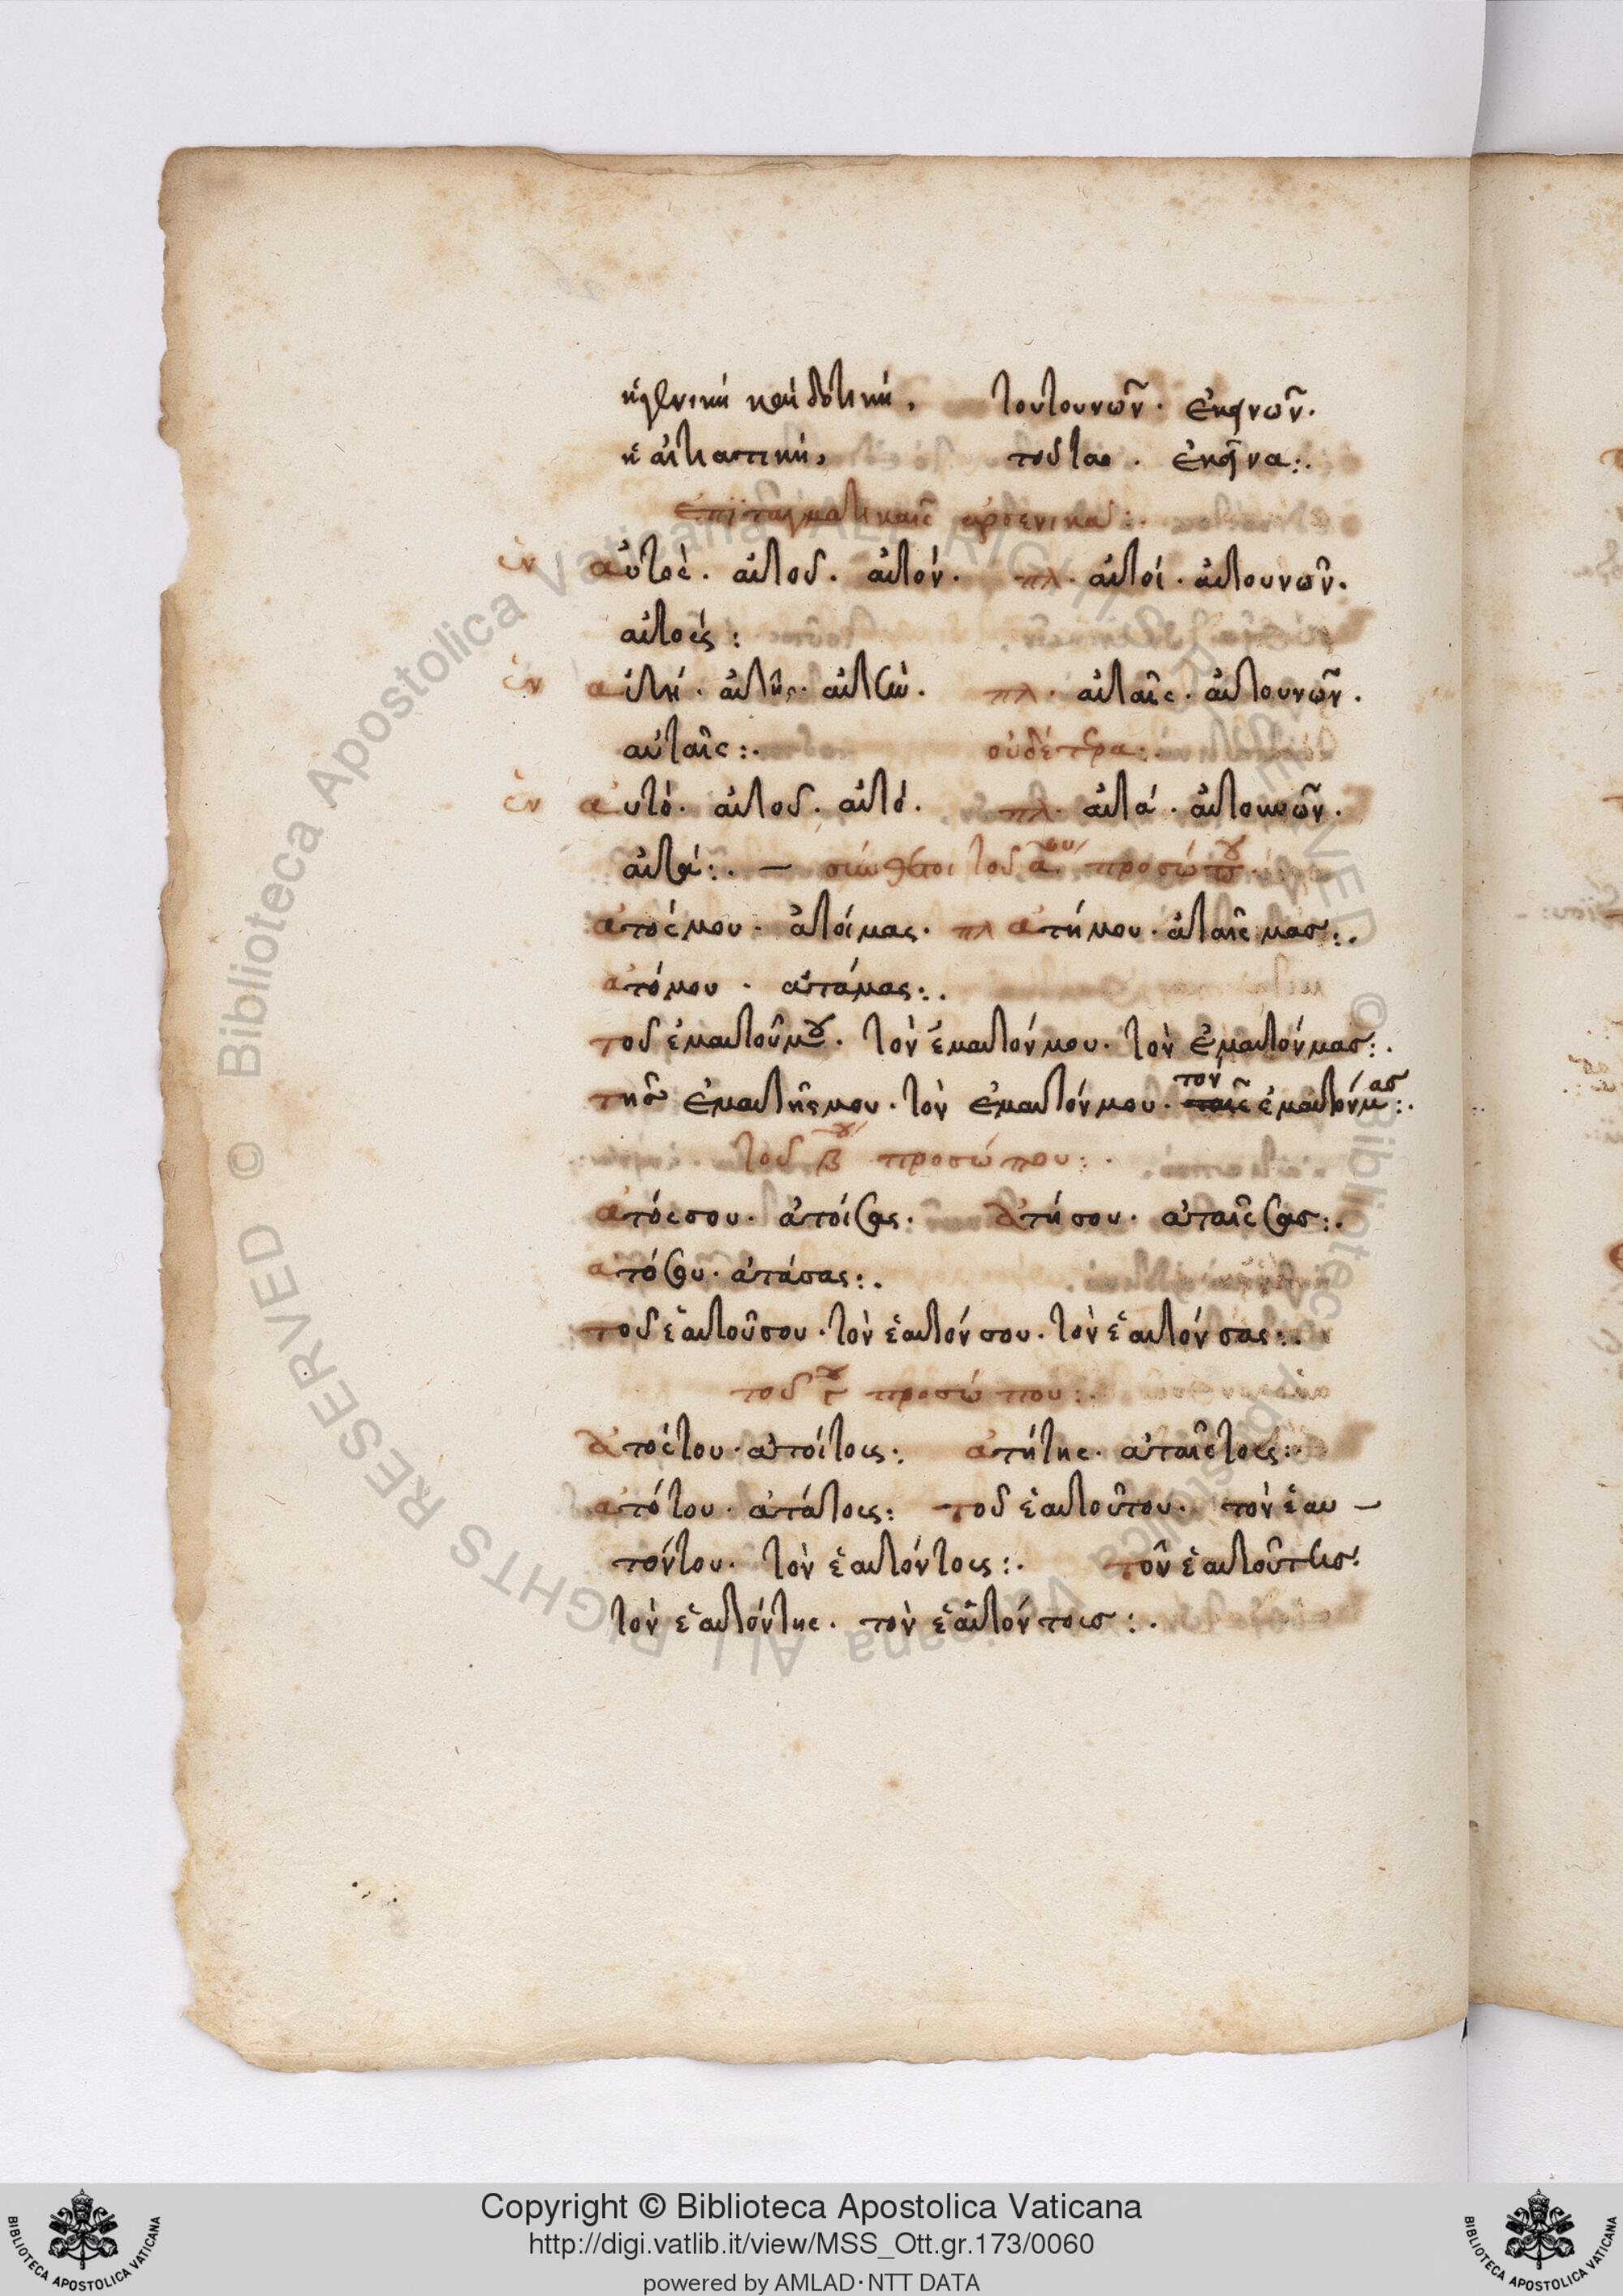 ἡ γενικὴ καὶ δοτικὴ, τουτουνῶν· ἐκεινῶν·
ἡ αἰτιατικὴ, τοῦτα· ἐκεῖνα:·
ἐπιταγματικαῖς ἀρσενικαὶ:·
ἑν αὐτὸς· αὐτοῦ· αὐτόν· πλ· αὐτοί· αὐτουνῶν·
αὐτούς:
ἑν αὐτή· αὐτῆς· αὐτὴν· πλ· αὐταῖς· αὐτουνῶν·
αὐταῖς:· οὐδέτερα:
ἑν αὐτὸ· αὐτοῦ· αὐτό· πλ· αὐτά· αὐτουνῶν·
αὐτά:· — σύνθετοι τοῦ α^ου προσώπου·
ἀτόςμου· ἀτοίμας· πλ ἀτήμου· ἀταῖςμας:·
ἀτόμου· ἀτάμας:·
τοῦ ἐμαυτοῦμου· τὸν ἐμαυτόνμου· τὸν ἐμαυτόνμας:·
τῆς ἐμαυτῆςμου· τὸν ἐμαυτόνμου· ταῖς τὸν ἐμαυτόνμας:·
τοῦ β^ου προσώπου:·
ἀτόςσου· ἀτοίσας· ἀτήσου· ἀταῖςσας:·
ἀτόσου· ἀτάσας:·
τοῦ ἑαυτοῦσου· τὸν ἑαυτόνσου· τὸν ἑαυτόνσας:·
τοῦ γ^ου προσώπου:·
ἀτόςτου· ἀτοίτους: ἀτήτης· ἀταῖςτους:
ἀτότου· ἀτάτους: τοῦ ἑαυτοῦτου· τὸν ἑαυ—
τόντου· τὸν ἑαυτόντους:· τοῦ ἑαυτοῦτης·
τὸν ἑαυτόντης· τὸν ἑαυτόντους:·
© Biblioteca Apostolica Vaticana ALL RIGHTS RESERVED
Copyright © Biblioteca Apostolica Vaticana
http://digi.vatlib.it/view/MSS_Ott.gr.173/0060
powered by AMLAD·NTT DATA
BIBLIOTECA APOSTOLICA VATICANA
BIBLIOTECA APOSTOLICA VATICANA